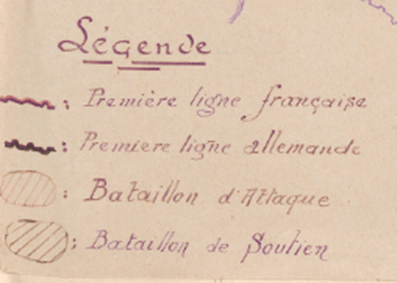 Légende
: Première ligne française
: Premiere ligne allemande
: Bataillon d'Attaque
: Bataillon de Soutien